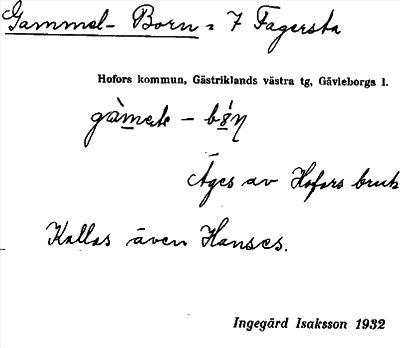 Gammel-Born = 7 Fagersta
Hofors kommun, Gästriklands västra tg, Gävleborgs l.
Äges av Hofors bruk
Kallas även Hanses.
Ingegärd Isaksson 1932